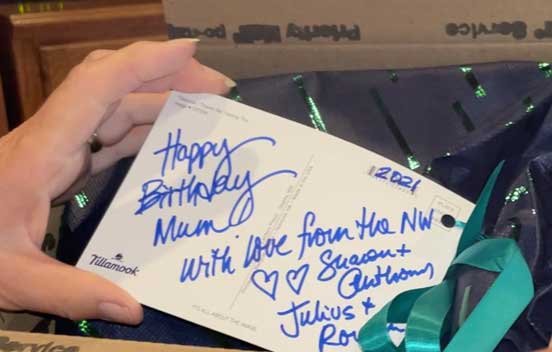 Priority Mail
Service
Happy
Birthday
Mum
2021
with love from the NW
♡♡ Sharon +
Anthony
Julius +
Tillamook
PLACE
IT'S ALL ABOUT THE IMAGE
Service